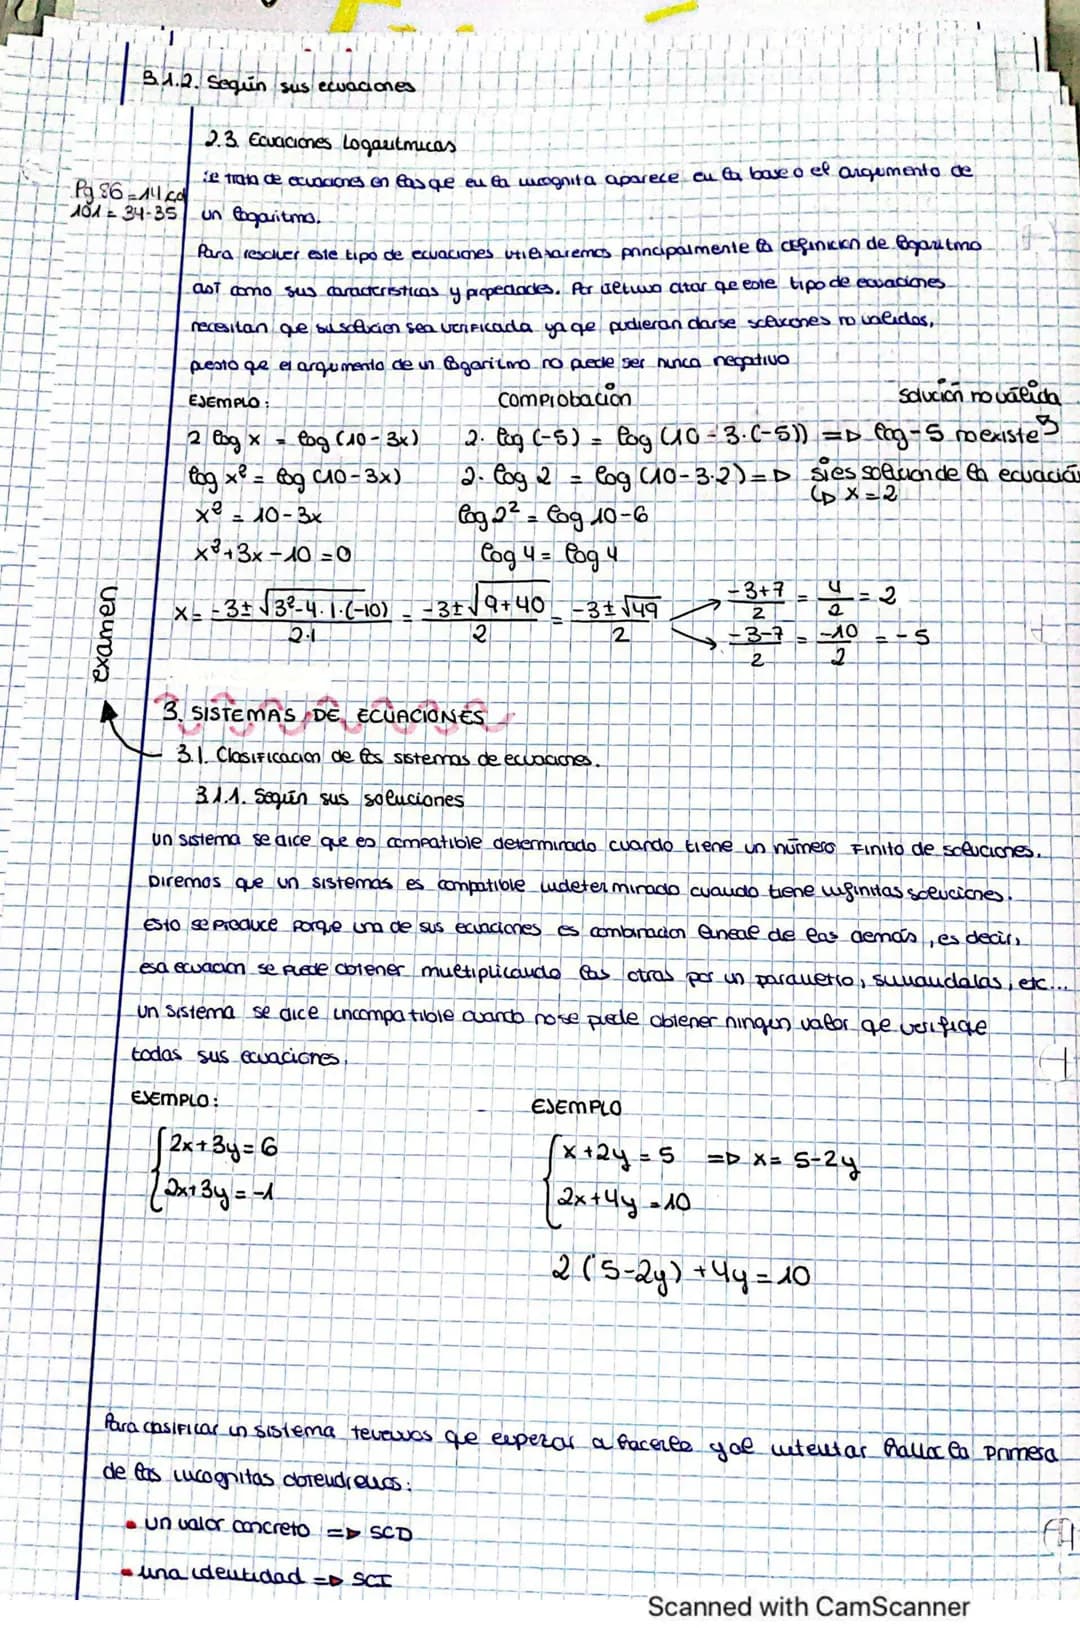 3.1.2. Según sus ecuaciones
2.3. Ecuaciones Logarítmicas
Se trata de ecuaciones en las que en la incognita aparece en la base o el argumento de
Pg 86 = 14 cd
101 = 34-35
un logaritmo.
Para resolver este tipo de ecuaciones utilizaremos principalmente la definición de logaritmo
así como sus características y propiedades. Por último citar qe este tipo de ecuaciones
necesitan que su solución sea verificada ya qe pudieran darse soluciones no validas,
pesto qe el argumento de un logaritmo no puede ser nunca negativo
EJEMPLO: comprobación solución no válida
2 log x = log (10-3x) 2. log (-5) = log (10-3.(-5)) => log-5 no existe
log x² = log (10-3x) 2. log 2 = log (10-3.2) => si es solución de la ecuación
x² = 10-3x log 2² = log 10-6 x=2
x²+3x-10=0 log 4 = log 4
x = -3±√3²-4.1.(-10) / 2.1 = -3±√9+40 / 2 = -3±√49 / 2 -3+7 / 2 = 4 / 2 = 2
-3-7 / 2 = -10 / 2 = -5
examen
3. SISTEMAS DE ECUACIONES
3.1. Clasificación de los sistemas de ecuaciones.
3.1.1. Según sus soluciones
un sistema se dice que es compatible determinado cuando tiene un número finito de soluciones.
Diremos que un sistemas es compatible indeterminado cuando tiene infinitas soluciones.
Esto se produce porque una de sus ecuaciones es combinación lineal de las demás, es decir,
esa ecuación se puede obtener multiplicando las otras por un parametro, sumandolas, etc...
un sistema se dice incompatible cuando no se puede obtener ningun valor qe verifique
todas sus ecuaciones.
EJEMPLO: EJEMPLO
2x+3y=6 x+2y=5 => x=5-2y
2x+3y=-1 2x+4y=10
2(5-2y)+4y=10
Para clasificar un sistema tenemos qe esperar a hacerlo y al intentar hallar la primera
de las incognitas obtendremos:
• un valor concreto => SCD
• una identidad => SCI
Scanned with CamScanner